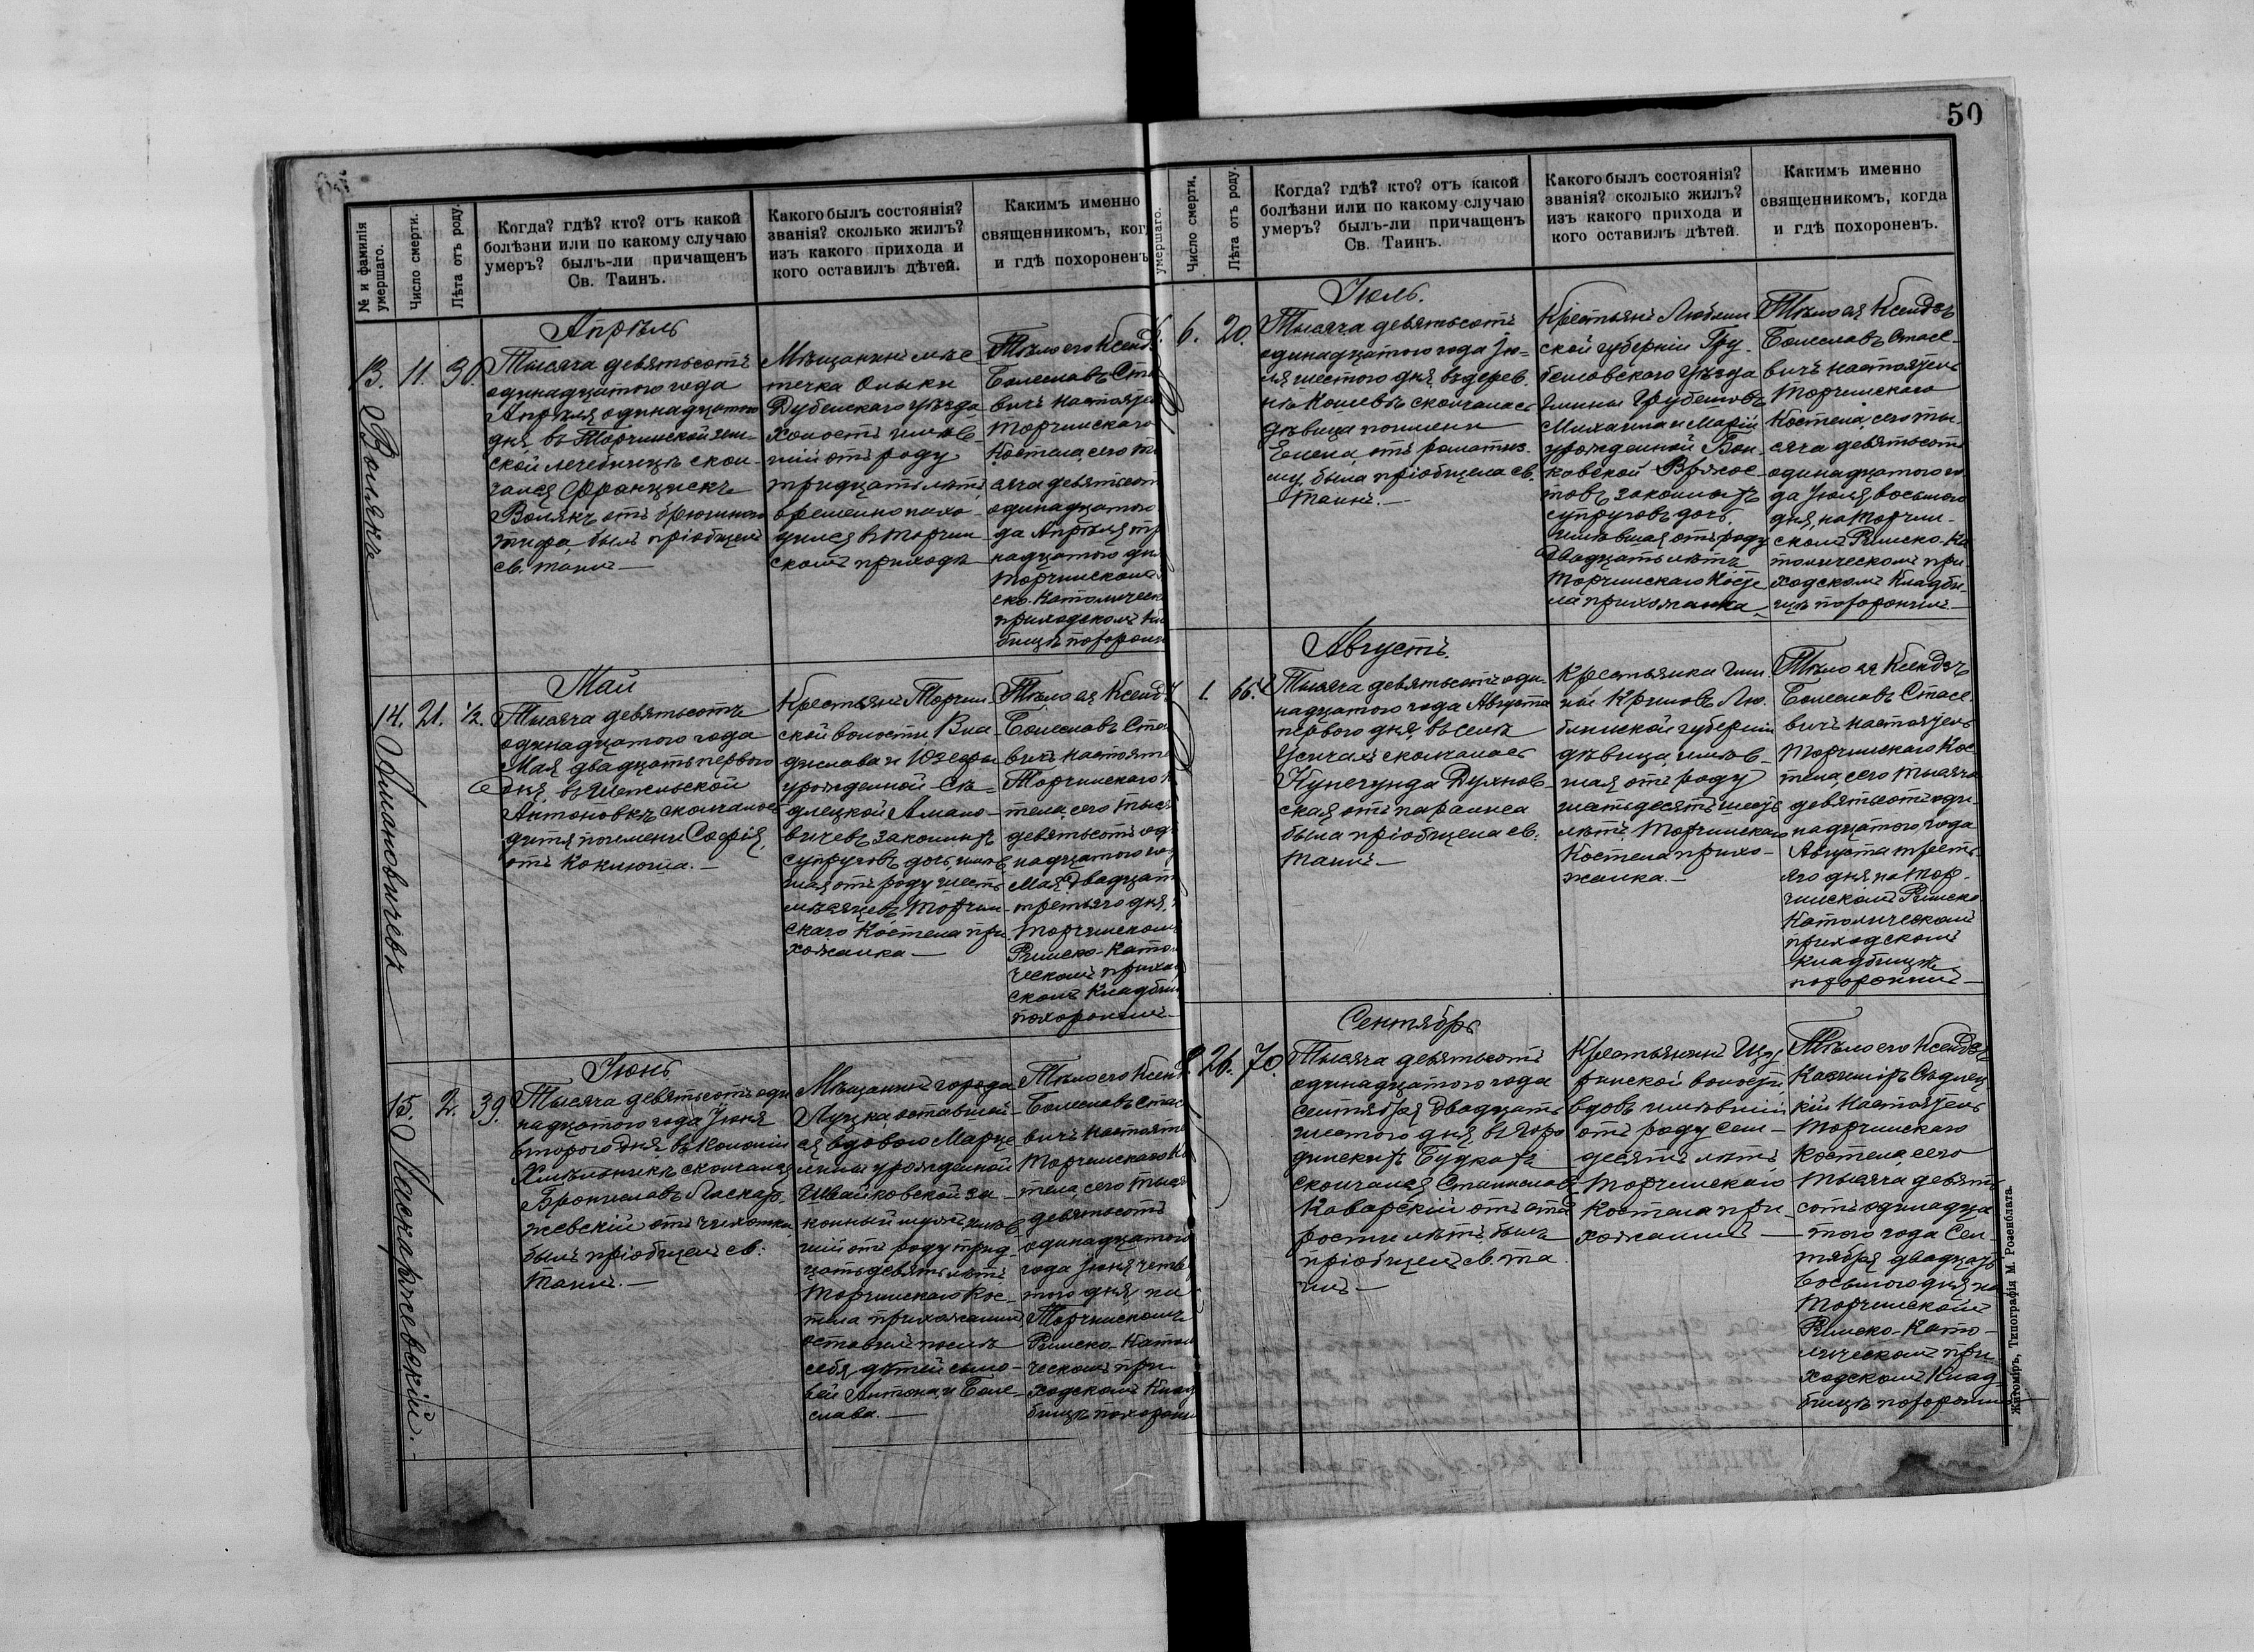 50
№ и фамилія умершаго.
Число смерти.
Лѣта отъ роду.
Когда? гдѣ? кто? отъ какой
болѣзни или по какому случаю
умеръ? былъ-ли причащенъ
Св. Таинъ.
Какого былъ состоянія?
званія? сколько жилъ?
изъ какого прихода и
кого оставилъ дѣтей.
Какимъ именно
священникомъ, ког
и гдѣ похороненъ
13. Волякъ
11.
30.
Апрѣль
Тысяча девятьсотъ
одинадцатого года
Апрѣля одинадцатого
дня, въ Торчинской зем-
ской лечебницѣ скон-
чался Францискъ
Волякъ отъ брюшного
тифа, былъ пріобщенъ
св. таинъ —
Мѣщанинъ мѣс-
течка Олыки
Дубенскаго уѣзда
холостъ имѣв-
шій отъ роду
тридцать лѣтъ,
временно нахо-
дился въ Торчин-
скомъ приходѣ
Тѣло его Ксенд
Болеславъ Ста
вичъ настояте
Торчинскаго
Костела, сего т
сяча девятьсот
одинадцатого
да Апрѣля тр
надцатого дня
Торчинском
ско-Католическ
приходскомъ Кл
бищѣ похорон
14. Амановичевъ
21.
½.
Май
Тысяча девятьсотъ
одинадцатого года
Мая двадцать первого
дня, въ Шепельской
Антоновкѣ скончалось
дитя по имени Софія,
отъ коклюша. —
Крестьянъ Торчин-
ской волости Вла-
дислава и Юзефы
урожденной Сѣ-
длецкой Амано-
вичевъ законныхъ
супруговъ дочь, имѣв
шая отъ роду шесть
мѣсяцевъ, Торчин-
скаго Костела при-
хожанка —
Тѣло ея Ксенд
Болеславъ Ста
вичъ настояте
Торчинскаго К
тела, сего тыся
девятьсотъ од
надцатого го
Мая двадцат
третьяго дня,
Торчинском
Римско-Като
ческомъ прихо
скомъ Кладби
похоронилъ —
15. Ласкаржевскій. —
2.
39.
Іюнь
Тысяча девятьсотъ оди
надцатого года Іюня
второго дня, въ Колоніи
Хмѣльникѣ скончался
Брониславъ Ласкар-
жевскій отъ чахотки,
былъ пріобщенъ св:
таинъ. —
Мѣщанинъ города
Луцка, оставшей-
ся вдовою Марце
лины урожденной
Швайковской за-
конный мужъ, имѣв-
шій отъ роду трид-
цать девять лѣтъ
Торчинскаго Кос-
тела прихожанинъ
оставилъ послѣ
себя дѣтей сыно-
вей Антона, и Боле-
слава. —
Тѣло его Ксенд
Болеславъ Стас
вичъ настояте
Торчинскаго Ко
тела, сего тыся
девятьсотъ
одинадцатого
года Іюня четве
того дня, на
Торчинскомъ
Римско-Катол
ческомъ при
ходскомъ Клад
бищѣ похорони
умершаго.
Число смерти.
Лѣта отъ роду.
Когда? гдѣ? кто? отъ какой
болѣзни или по какому случаю
умеръ? былъ-ли причащенъ
Св. Таинъ.
Какого былъ состоянія?
званія? сколько жилъ?
изъ какого прихода и
кого оставилъ дѣтей.
Какимъ именно
священникомъ, когда
и гдѣ похороненъ.
6.
20.
Іюль.
Тысяча девятьсотъ
одинадцатого года Ію-
ля шестого дня, въ дерев-
нѣ Кошевѣ скончалась
дѣвица по имени
Елена, отъ роматиз-
му, была пріобщена св.
таинъ. —
Крестьянъ Люблин-
ской губерніи Гру-
бешовскаго уѣзда
Гмины Грубешовъ
Михаила и Маріи
урожденной
законныхъ
супруговъ дочь,
имѣвшая отъ роду
двадцать лѣтъ,
Торчинскаго Косте
ла прихожанка
Тѣло ея Ксендзъ
Болеславъ Стасе-
вичъ настоятель
Торчинскаго
Костела, сего ты-
сяча девятьсотъ
одинадцатого го-
да Іюля восьмого
дня, на Торчин-
скомъ Римско-Ка
толическомъ при
ходскомъ Кладби-
щѣ похоронилъ —
1.
66.
Августъ.
Тысяча девятьсотъ оди-
надцатого года Августа
первого дня, въ селѣ
Усичахъ скончалась
Кунегунда Духнов-
ская отъ паралиса
была пріобщена св:
таинъ —
Крестьянка Гми-
ны Крыловъ Лю-
блинской губерніи
дѣвица, имѣв-
шая отъ роду
шестьдесятъ шесть
лѣтъ Торчинскаго
Костела прихо-
жанка. —
Тѣло ея Ксендзъ
Болеславъ Стасе-
вичъ настоятель
Торчинскаго Кос-
тела, сего тысяча
девятьсотъ оди-
надцатого года
Августа треть-
яго дня, на Тор-
чинскомъ Римско
Католическомъ
приходскомъ
Кладбищѣ
похоронилъ —
26.
70.
Сентябрь
Тысяча девятьсотъ
одинадцатого года
Сентября двадцать
шестого дня, въ Горо
динскихъ Будкахъ
скончался Станиславъ
Каварскій отъ ста
рости лѣтъ, былъ
пріобщенъ св. та
инъ —
Крестьянинъ
волости,
вдовъ имѣвшій
отъ роду сем-
десятъ лѣтъ,
Торчинскаго
Костела при-
хожанинъ —
Тѣло его Ксендзъ
Казиміръ Сѣдлец-
кій Настоятель
Торчинскаго
Костела, сего
тысяча девять
сотъ одинадца
того года Сен-
тября двадцать
восьмого дня, на
Торчинскомъ
Римско-Като-
лическомъ при
ходскомъ Клад-
бищѣ похоронилъ
Житоміръ, Типографія М. Розенблата.